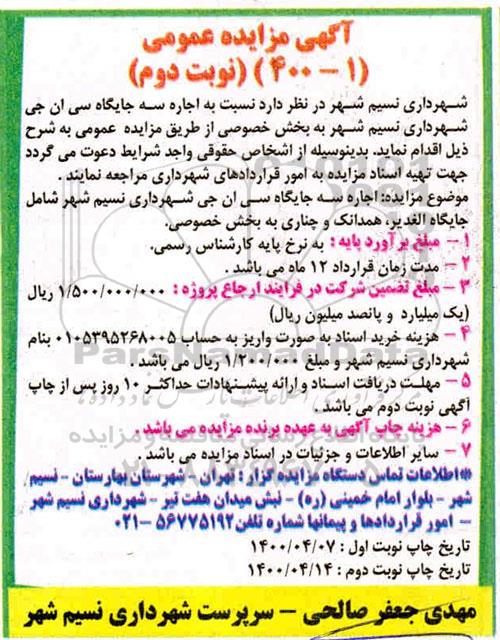 آگهی مزایده عمومی
(۱ – ۴۰۰) (نوبت دوم)
شهرداری نسیم شهر در نظر دارد نسبت به اجاره سه جایگاه سی ان جی
شهرداری نسیم شهر به بخش خصوصی از طریق مزایده عمومی به شرح
ذیل اقدام نماید. بدینوسیله از اشخاص حقوقی واجد شرایط دعوت می گردد
جهت تهیه اسناد مزایده به امور قراردادهای شهرداری مراجعه نمایند .
موضوع مزایده: اجاره سه جایگاه سی ان جی شهرداری نسیم شهر شامل
جایگاه الغدیر، همدانک و چناری به بخش خصوصی.
۱ – مبلغ برآورد پایه : به نرخ پایه کارشناس رسمی.
۲ – مدت زمان قرارداد ۱۲ ماه می باشد .
۳ – مبلغ تضمین شرکت در فرایند ارجاع پروژه : ۱/۵۰۰/۰۰۰/۰۰۰ ریال
(یک میلیارد و پانصد میلیون ریال)
۴ – هزینه خرید اسناد به صورت واریز به حساب ۰۱۰۵۳۹۵۲۶۸۰۰۵ بنام
شهرداری نسیم شهر و مبلغ ۱/۲۰۰/۰۰۰ ریال می باشد .
۵ – مهلت دریافت اسناد و ارائه پیشنهادات حداکثر ۱۰ روز پس از چاپ
آگهی نوبت دوم می باشد .
۶ – هزینه چاپ آگهی به عهده برنده مزایده می باشد .
۷ – سایر اطلاعات و جزئیات در اسناد مزایده می باشد .
*اطلاعات تماس دستگاه مزایده گزار : تهران – شهرستان بهارستان – نسیم
شهر – بلوار امام خمینی (ره) – نبش میدان هفت تیر – شهرداری نسیم شهر
– امور قراردادها و پیمانها شماره تلفن ۵۶۷۷۵۱۹۲–۰۲۱
تاریخ چاپ نوبت اول : ۱۴۰۰/۰۴/۰۷
تاریخ چاپ نوبت دوم : ۱۴۰۰/۰۴/۱۴
مهدی جعفر صالحی – سرپرست شهرداری نسیم شهر
ParsNamadData